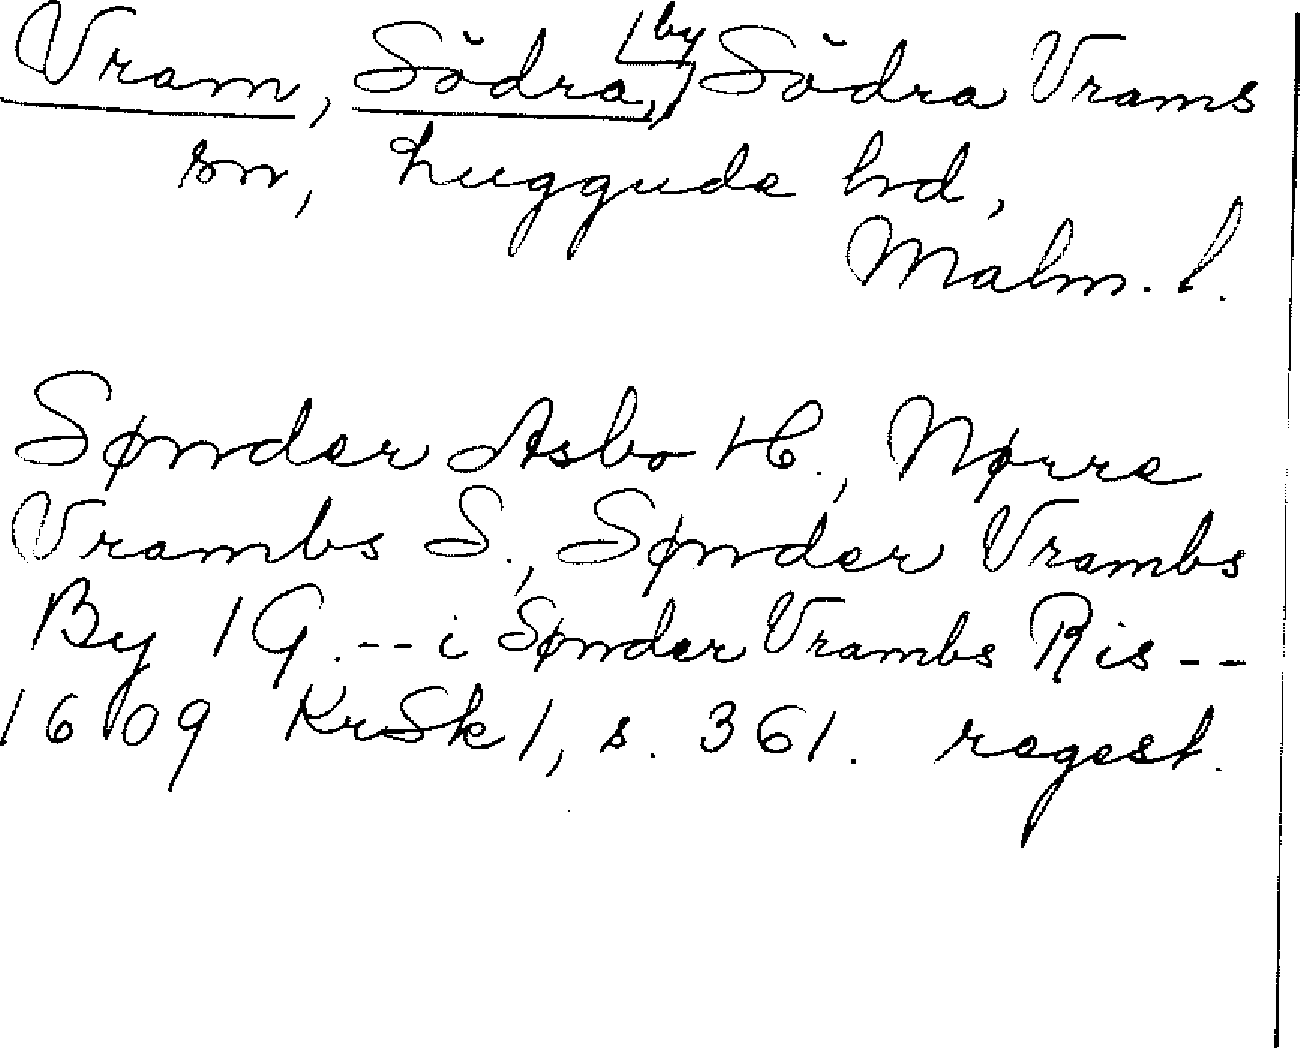 Vram, Södra, by, Södra Vrams
sn, Luggude hd,
Malm. l.
Sønder Asbo H., Nørre
Vrambs S., Sønder Vrambs
By 1 G. -- i Sønder Vrambs Ris --
1609 KrSk 1, s. 361. regest.